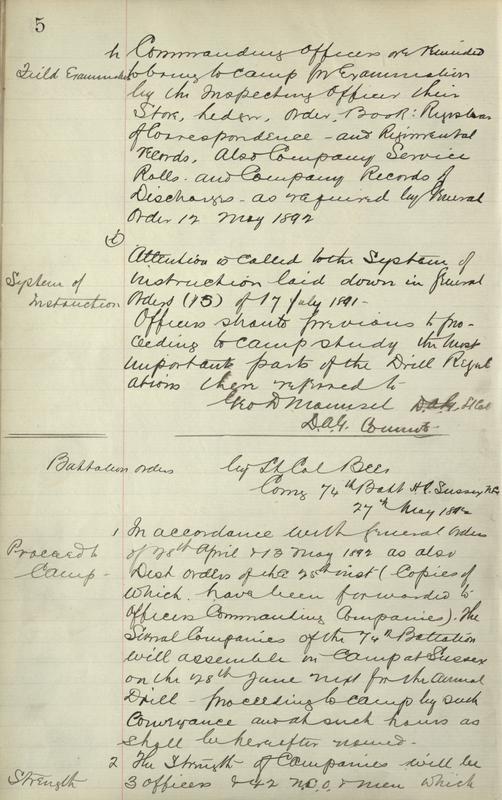 5
h Commanding Officers are reminded
Field Examination to bring to camp for Examination
by the Inspecting Officer their
Store, Ledger, Order, Book: Registers
of Correspondence - and Regimental
records, Also Company Service
Rolls - and Company Records of
Discharges - as required by General
Order 12 May 1892
Attention is called to the System of
System of Instruction instruction laid down in General
Orders (15) of 17 July 1891 -
Officers should previous to pro-
ceeding to camp study the most
important parts of the Drill Regul
ations there referred to
Geo D Maunsel D.A.G. Lt Col
D.A.G. Comm
Battalion orders by Lt Col Beer
Comg 74th Batt Hd. Sussex N.B.
27th May 1892
1 In accordance with General Orders
Proceed to Camp - of 28th April & 13 May 1892 as also
Dist orders of the 25th inst (Copies of
which have been forwarded to
Officers Commanding Companies). The
Several Companies of the 74th Battalion
will assemble in Camp at Sussex
on the 28th June next for the Annual
Drill - proceeding to camp by such
Conveyance and at such hours as
shall be hereafter named -
2 The Strength of Companies will be
Strength 3 officers & 42 N.C.O. & men which